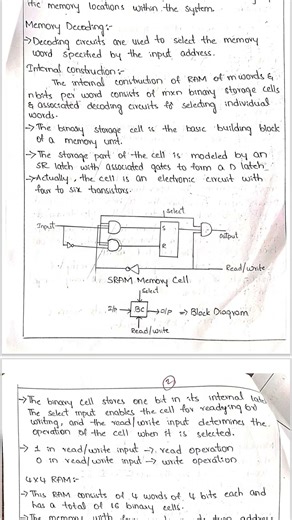 the memory locations within the system.
Memory Decoding:-
→Decoding circuits are used to select the memory
word specified by the input address.
Internal construction:-
The internal construction of RAM of m words &
n bits per word consists of m×n binary storage cells
& associated decoding circuits for selecting individual
words.
→The binary storage cell is the basic building block
of a memory unit.
→The storage part of the cell is modeled by an
SR latch with associated gates to form a D latch
→Actually, the cell is an electronic circuit with
four to six transistors.
select
Input
S
R
Output
Read/write
SRAM Memory Cell
select
I/P
BC
O/P
→Block Diagram
Read/write
2
→The binary cell stores one bit in its internal
The select input enables the cell for reading
writing, and the read/write input determines the
operation of the cell when it is selected.
→ 1 in read/write input → read operation
0 in read/write input → write operation
4x4 RAM:-
→This RAM consists of 4 words of 4 bits each and
has a total of 16 binary cells.
→The memory with four words
two address